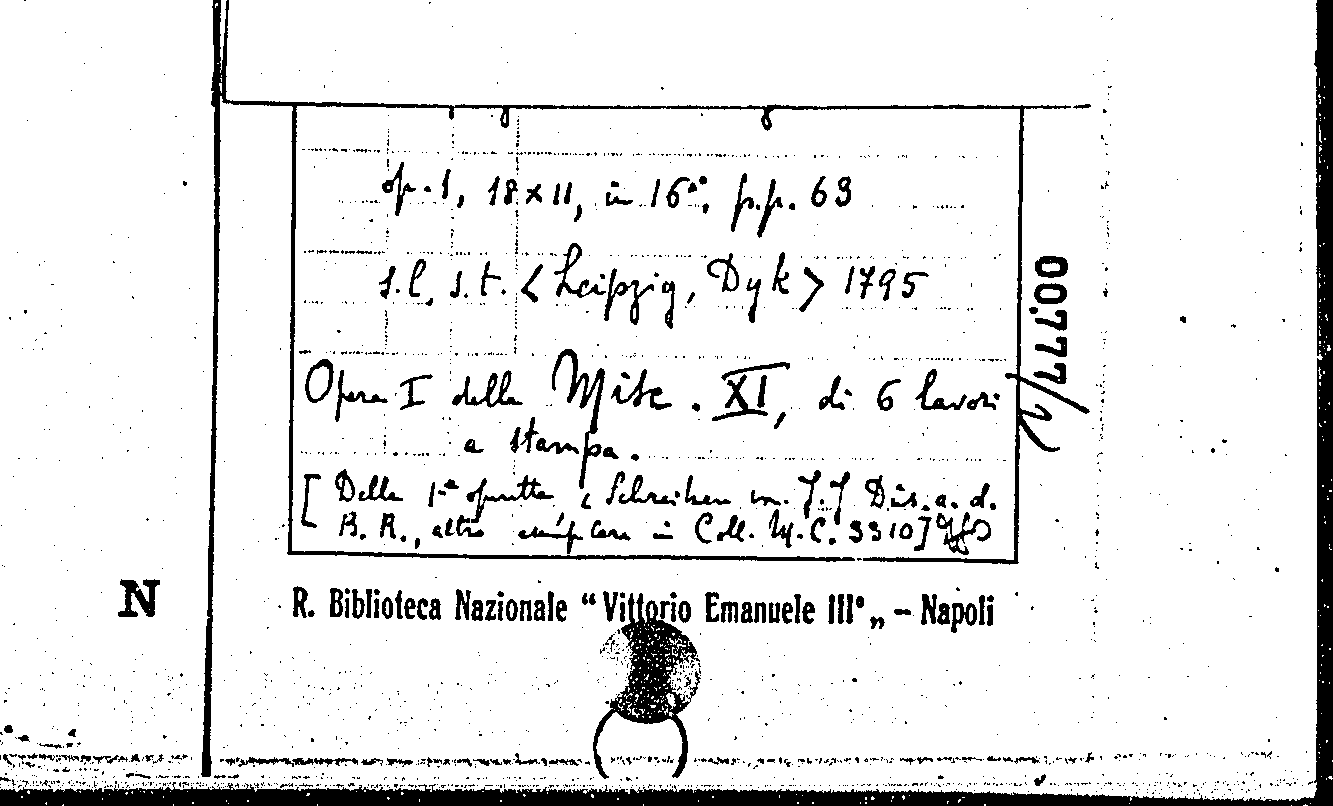 op. 1, 18 x 11, in 16°, p.p. 63
s.l, s.t. < Leipzig, Dyk > 1795
Opera I della Misc. XI, di 6 lavori
a stampa.
[ Della 1ª operetta, < Schreiben von J. J Dis. a. d.
B. R., altro esemplare in Coll. M. C. 3310]
00.777/
N
R. Biblioteca Nazionale “Vittorio Emanuele III° „ – Napoli